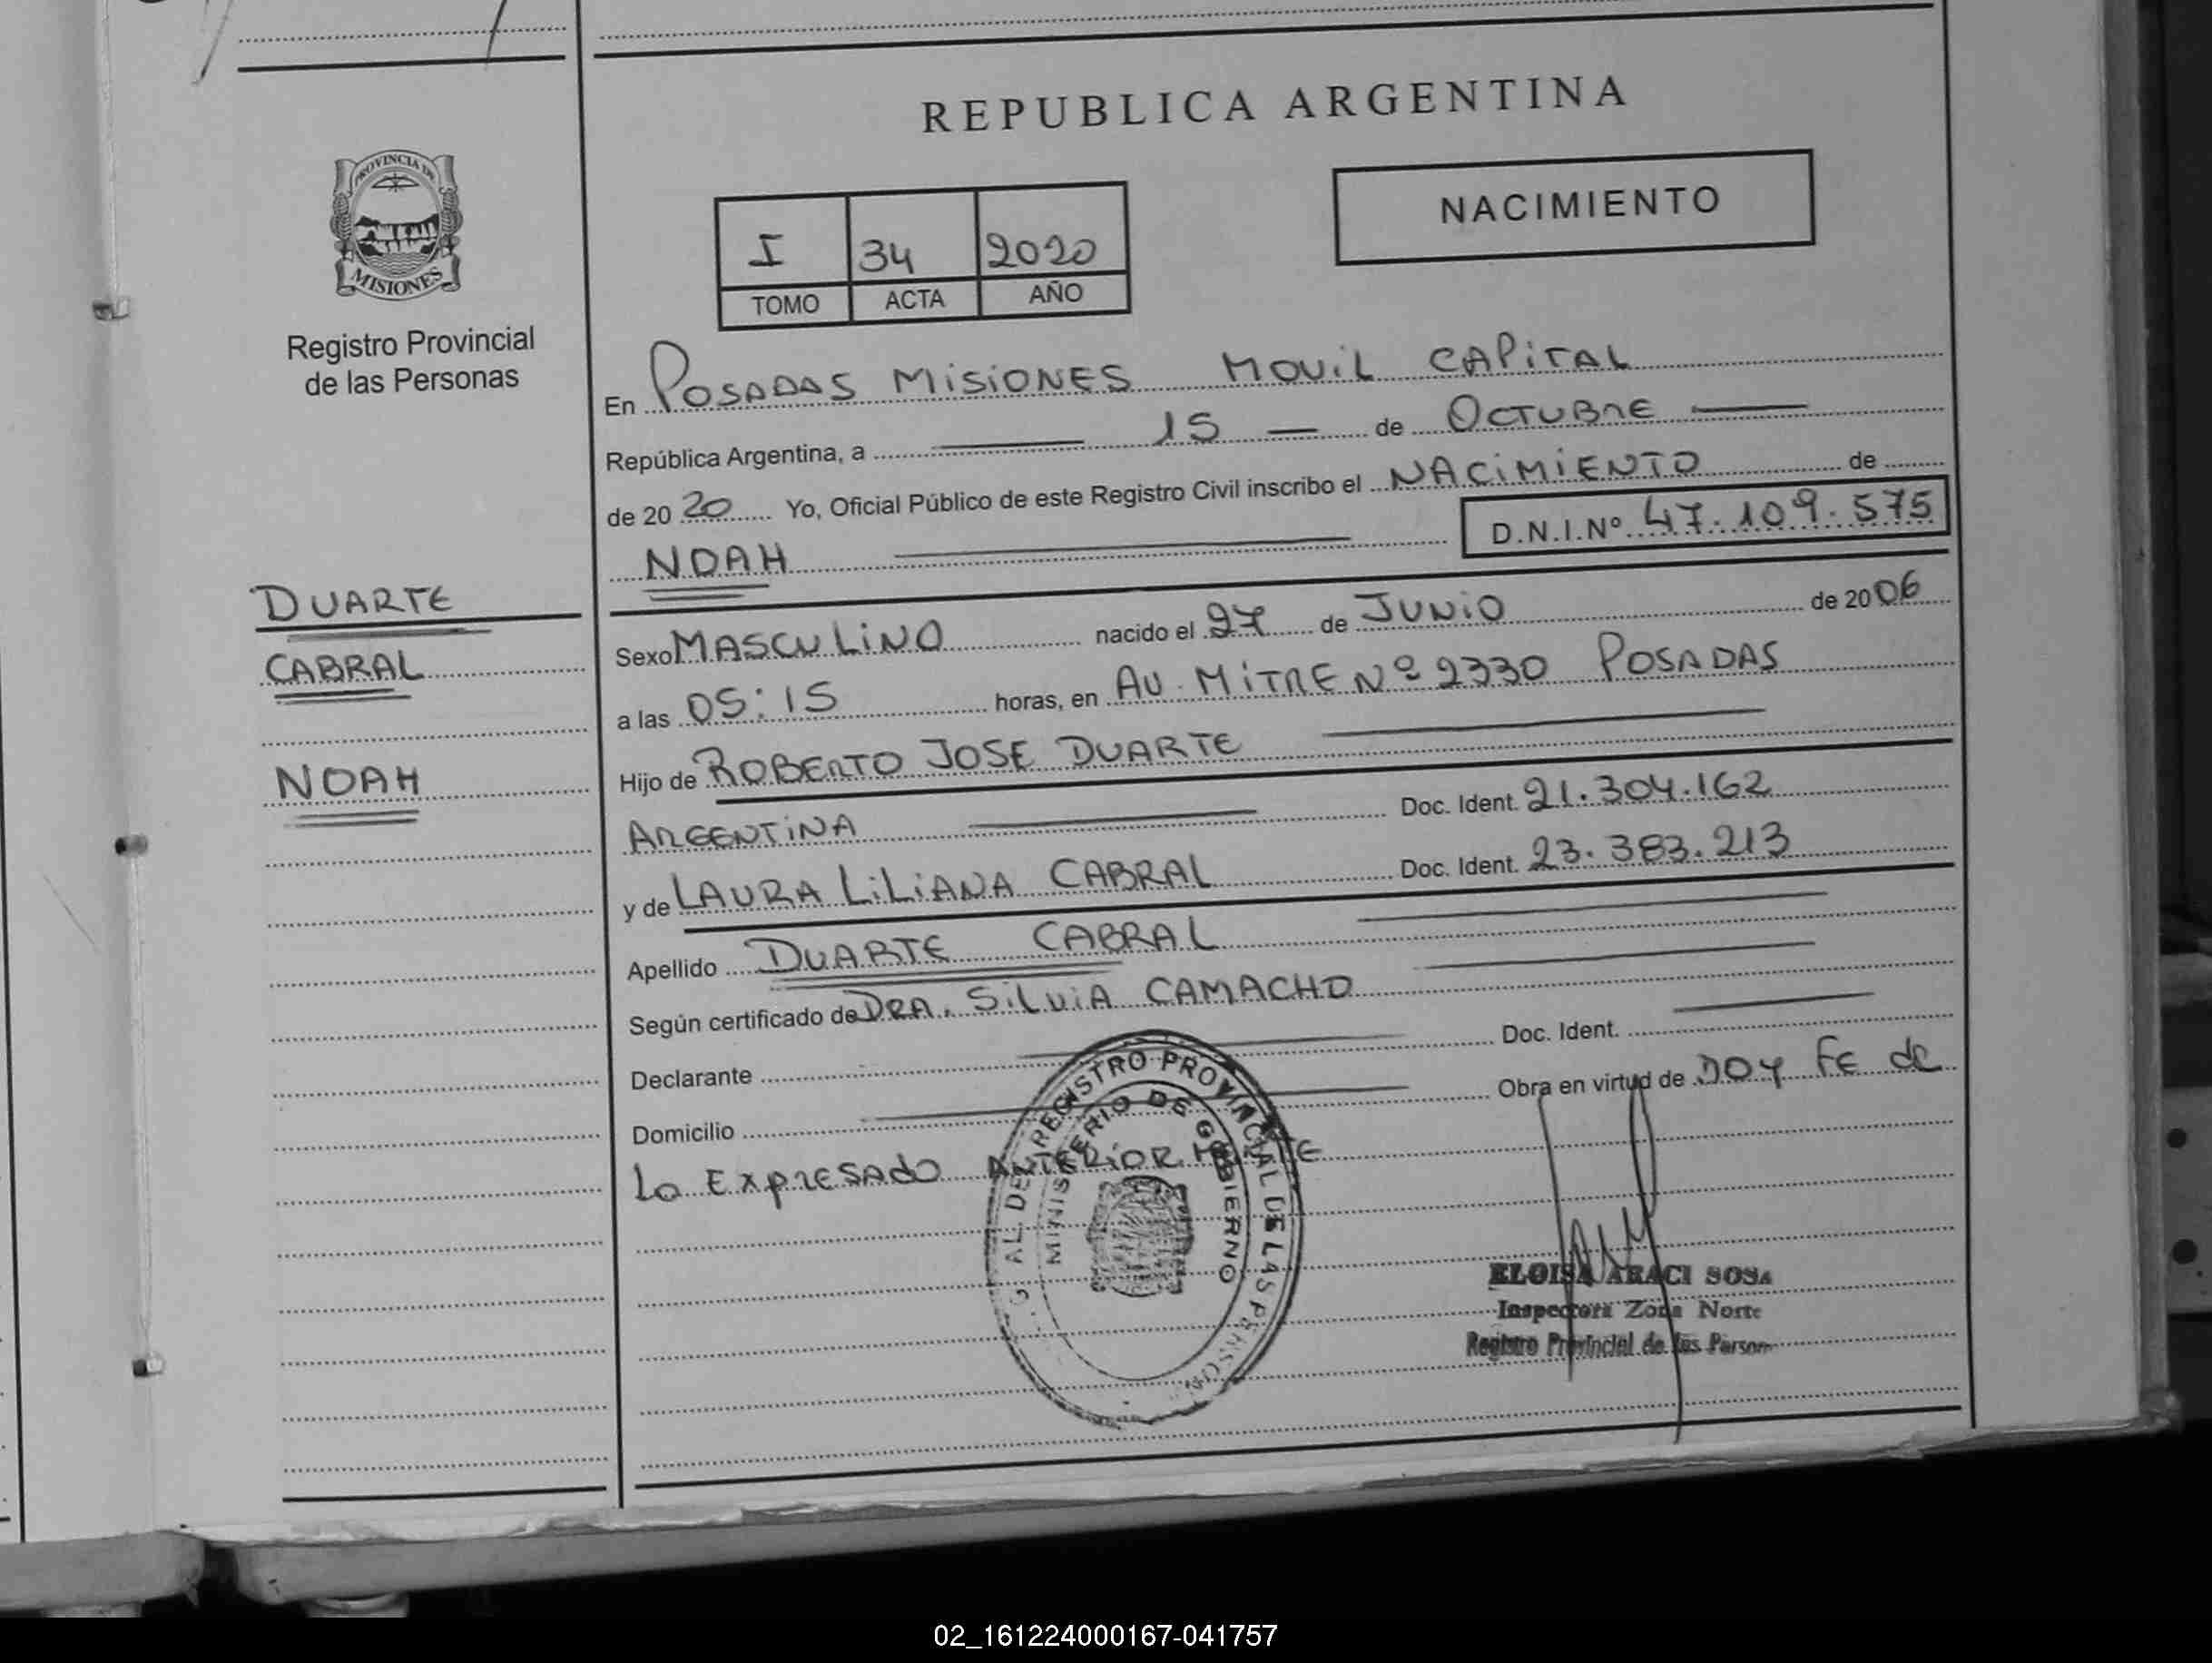 REPUBLICA ARGENTINA
PROVINCIA DE
MISIONES
Registro Provincial
de las Personas
NACIMIENTO
I 34 2020
TOMO ACTA AÑO
En POSADAS MISIONES MOVIL CAPITAL
República Argentina, a 15 de OCTUBRE
de 20 20 Yo, Oficial Público de este Registro Civil inscribo el NACIMIENTO de
NOAH D.N.I.Nº 47.109.575
DUARTE
CABRAL
NOAH
Sexo MASCULINO nacido el 27 de JUNIO de 20 06
a las 05:15 horas, en AV. MITRE Nº 2330 POSADAS
Hijo de ROBERTO JOSE DUARTE
ARGENTINA Doc. Ident. 21.304.162
y de LAURA LILIANA CABRAL Doc. Ident. 23.383.213
Apellido DUARTE CABRAL
Según certificado de DRA. SILVIA CAMACHO
Declarante Doc. Ident.
Domicilio Obra en virtud de DOY FE de
Lo EXPRESADO ANTERIORMENTE
REGISTRO PROVINCIAL DE LAS PERSONAS
MINISTERIO DE GOBIERNO
ELOISA ARACI SOSA
Inspectora Zona Norte
Registro Provincial de las Person
02_161224000167-041757